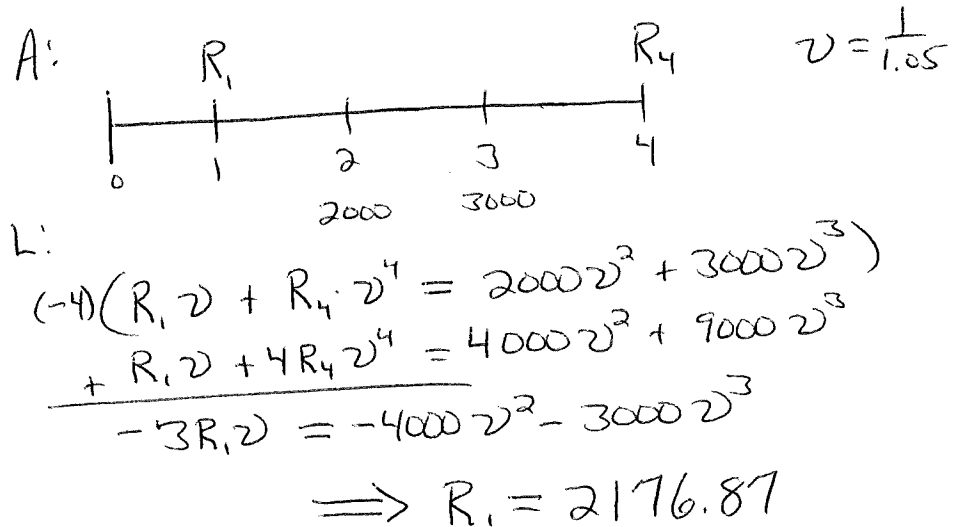 A: R₁ R₄ v = 1/1.05
0 1 2 3 4
2000 3000
L:
(-4)(R₁v + R₄·v⁴ = 2000v² + 3000v³)
+ R₁v + 4R₄v⁴ = 4000v² + 9000v³
-3R₁v = -4000v² - 3000v³
⟹ R₁ = 2176.87